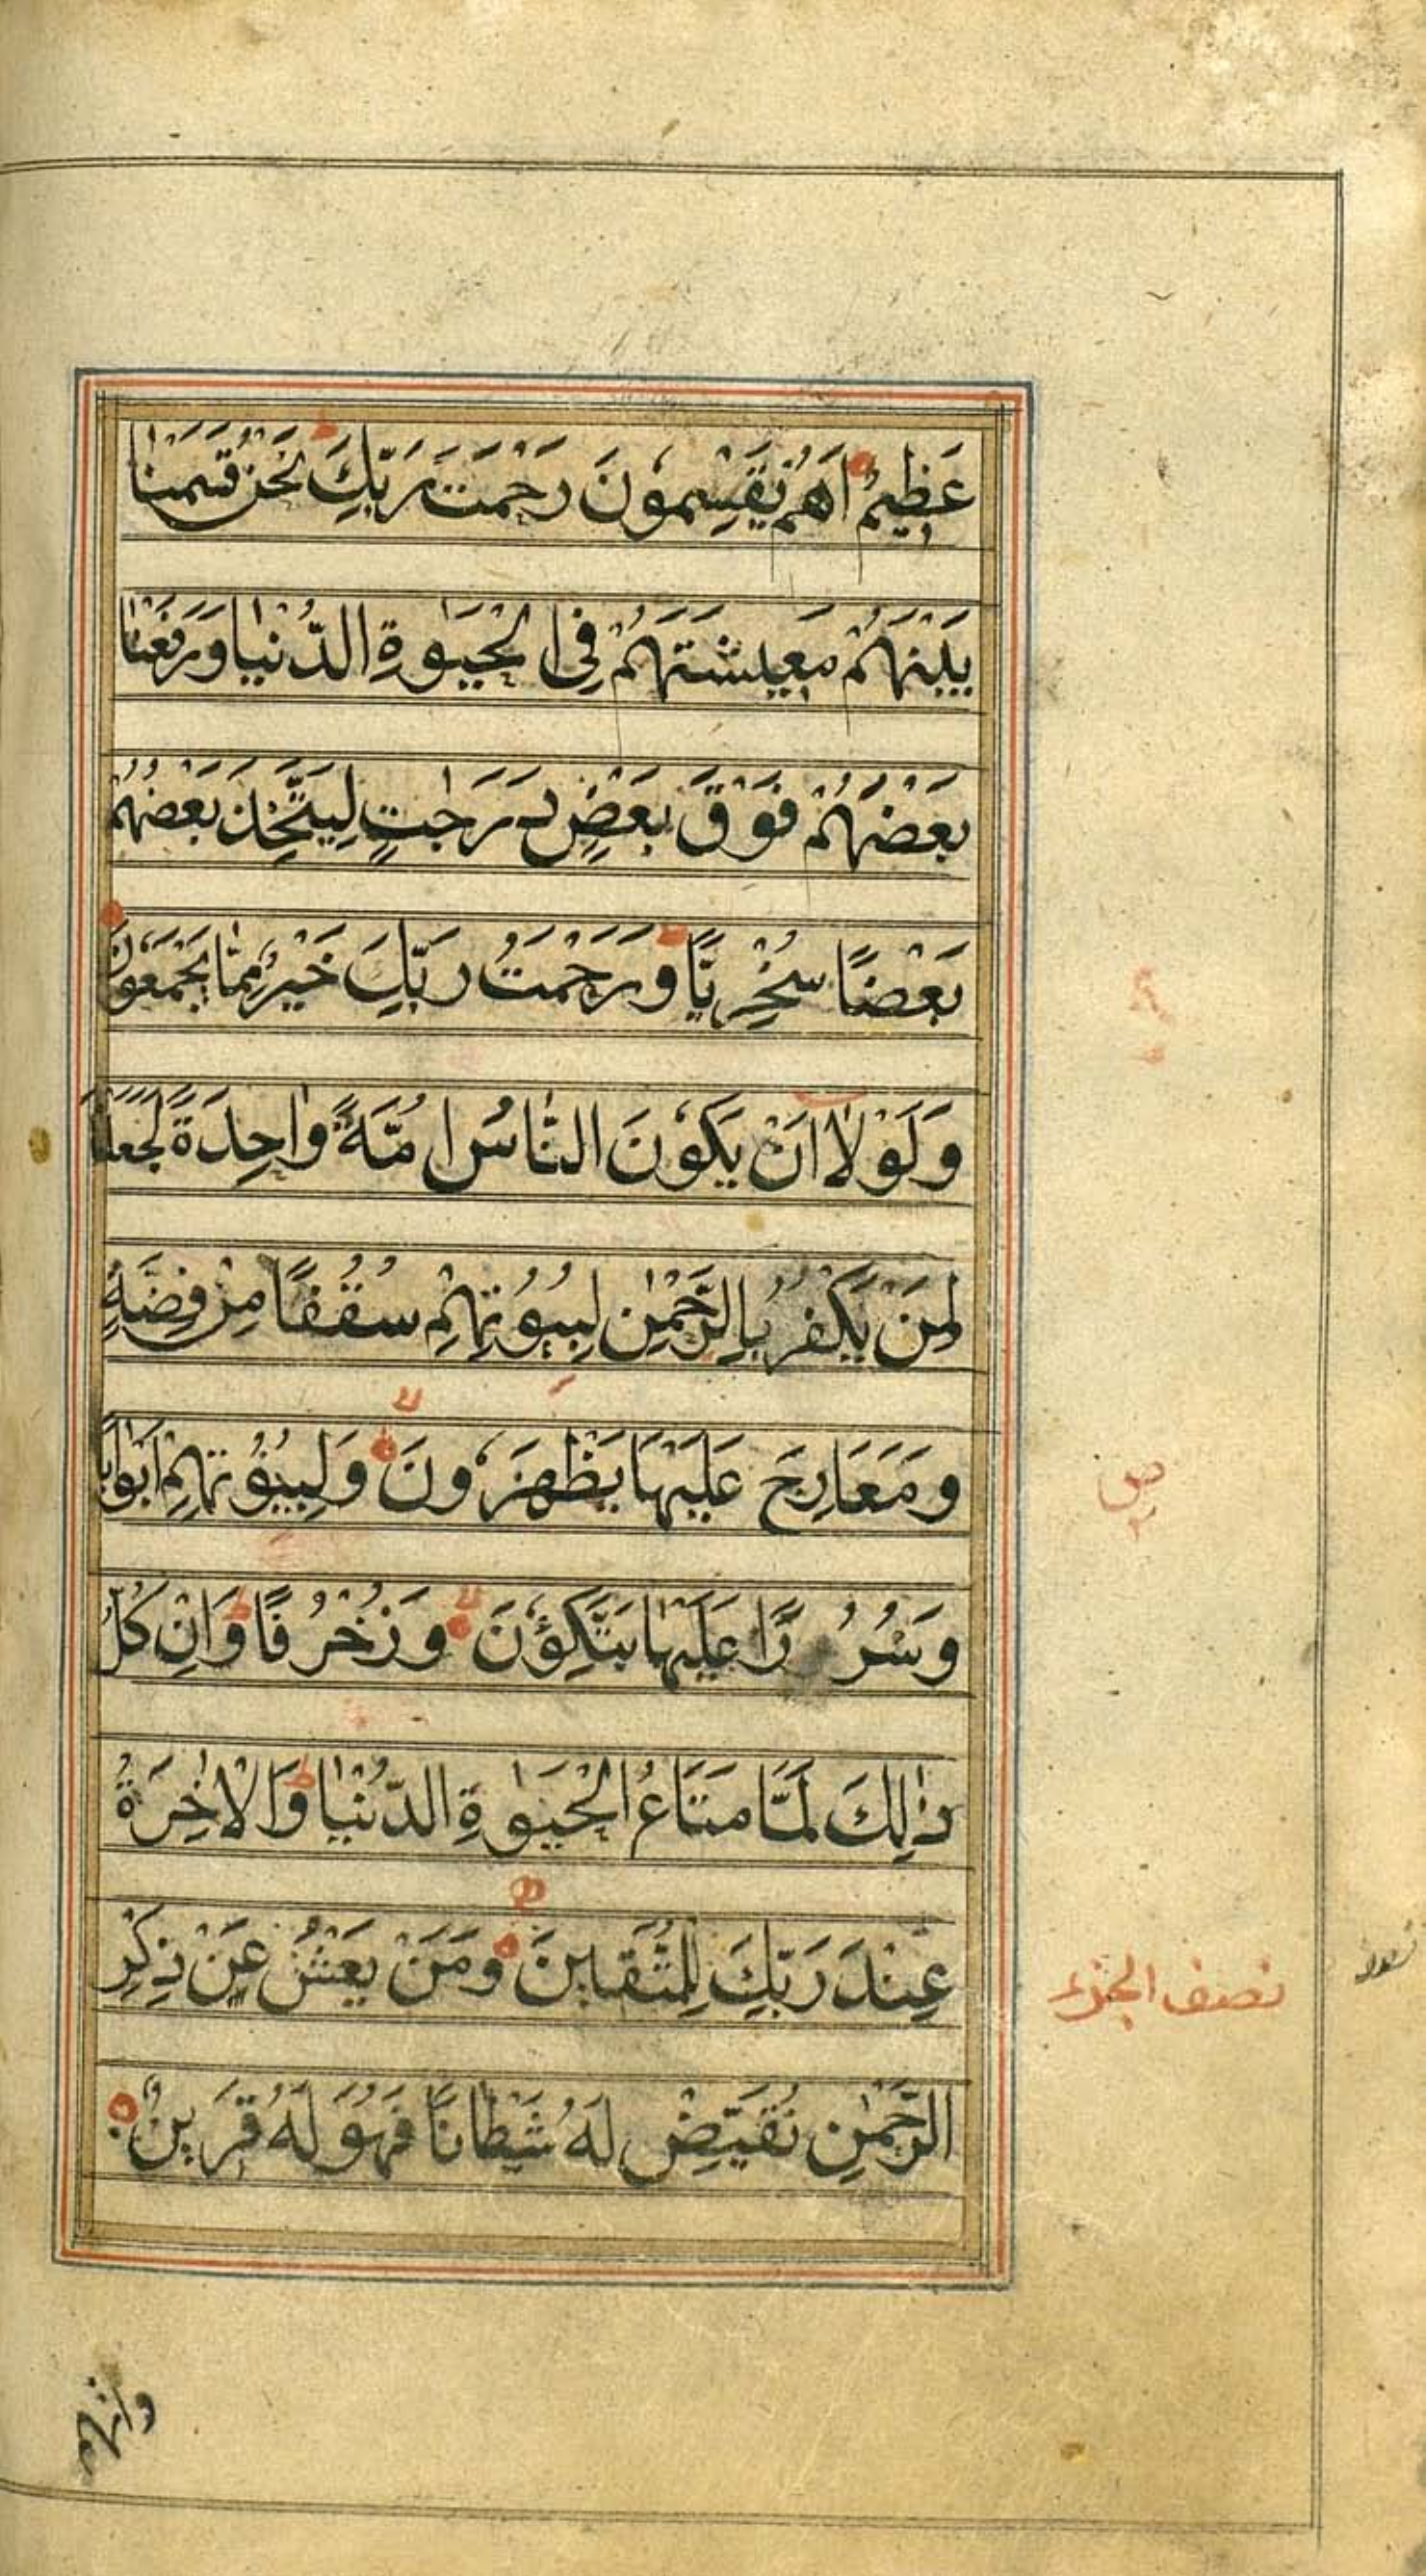 عَظِيمٍ اَهُمْ يَقْسِمُونَ رَحْمَتَ رَبِّكَ نَحْنُ قَسَمْنَا
بَيْنَهُمْ مَعِيشَتَهُمْ فِي الْحَيٰوةِ الدُّنْيَا وَرَفَعْنَا
بَعْضَهُمْ فَوْقَ بَعْضٍ دَرَجٰتٍ لِيَتَّخِذَ بَعْضُهُمْ
بَعْضًا سُخْرِيًّا وَرَحْمَتُ رَبِّكَ خَيْرٌ مِمَّا يَجْمَعُونَ
وَلَوْلَا اَنْ يَكُونَ النَّاسُ اُمَّةً وَاحِدَةً لَجَعَلْنَا
لِمَنْ يَكْفُرُ بِالرَّحْمٰنِ لِبُيُوتِهِمْ سُقُفًا مِنْ فِضَّةٍ
وَمَعَارِجَ عَلَيْهَا يَظْهَرُونَ وَلِبُيُوتِهِمْ اَبْوَابًا
وَسُرُرًا عَلَيْهَا يَتَّكِؤُنَ وَزُخْرُفًا وَاِنْ كُلُّ
ذٰلِكَ لَمَّا مَتَاعُ الْحَيٰوةِ الدُّنْيَا وَالْاٰخِرَةُ
عِنْدَ رَبِّكَ لِلْمُتَّقِينَ وَمَنْ يَعْشُ عَنْ ذِكْرِ
الرَّحْمٰنِ نُقَيِّضْ لَهُ شَيْطَانًا فَهُوَ لَهُ قَرِينٌ
ع
ص
نصف الجزء
وانهم